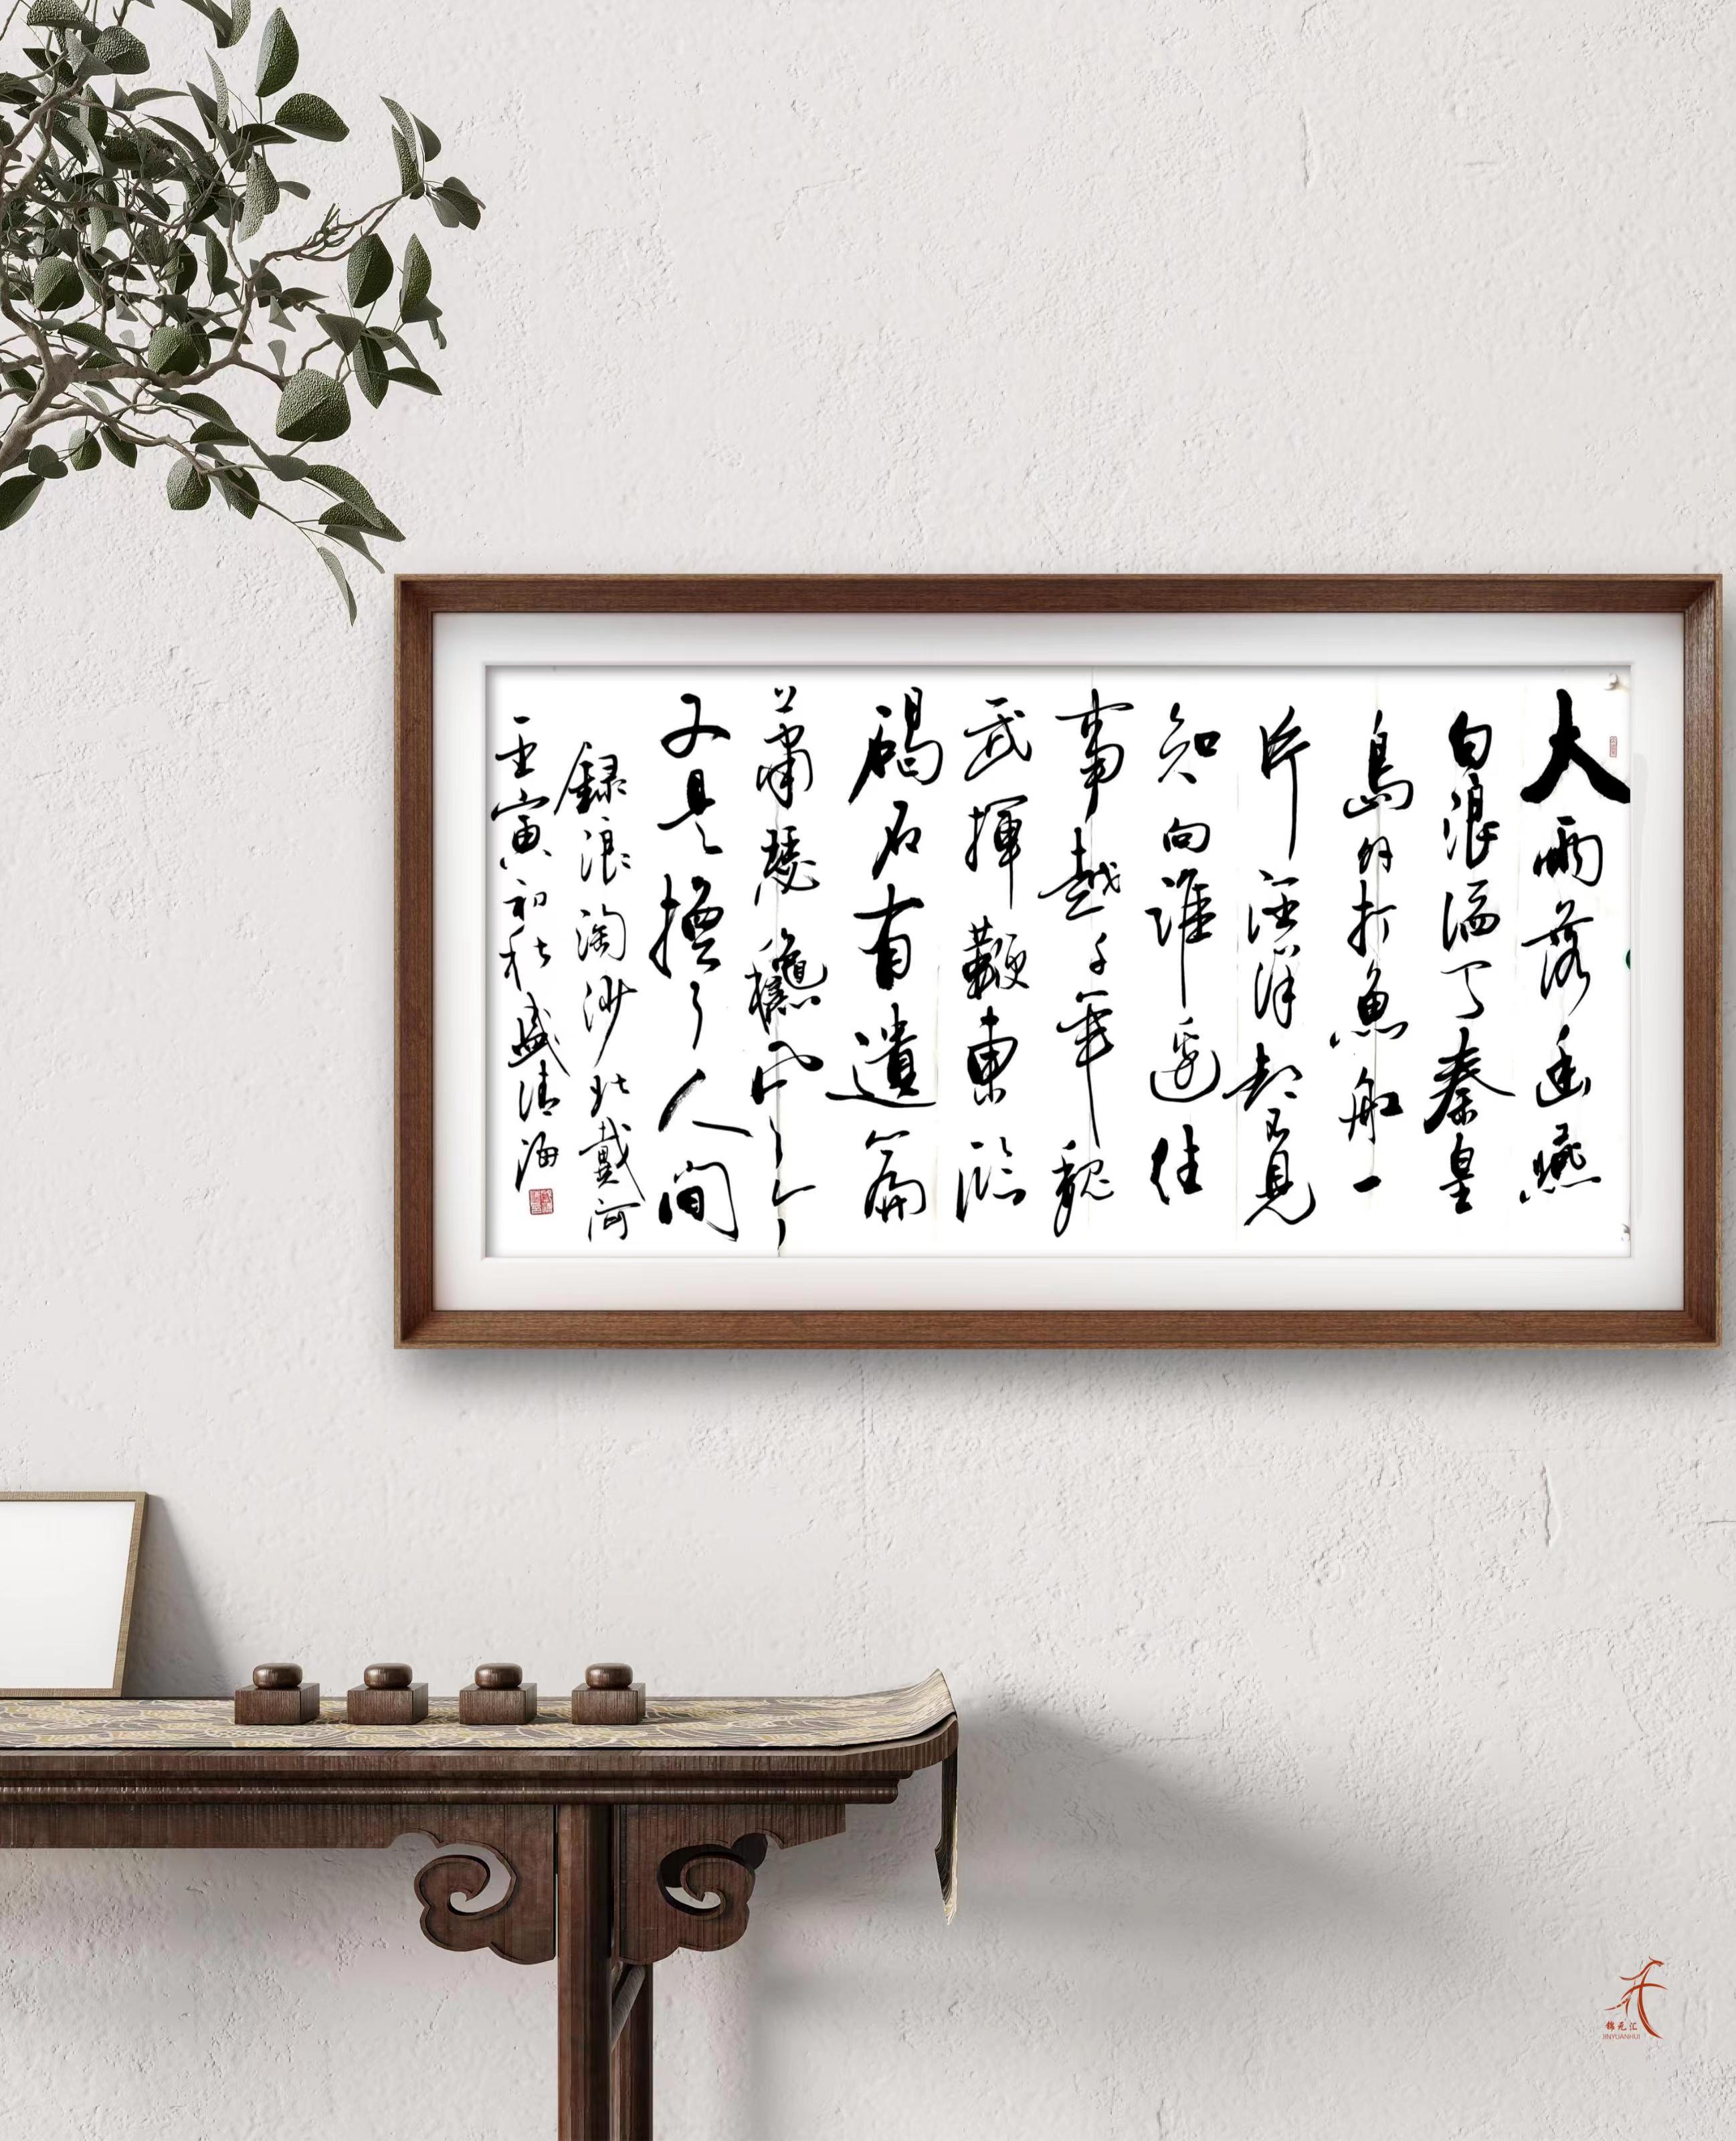 大雨落幽燕
白浪滔天秦皇
島外打魚船一
片汪洋都不見
知向誰邊往
事越千年魏
武揮鞭東臨
碣石有遺篇
蕭瑟穐風今
又是換了人間
錄浪淘沙北戴河
壬寅初秋盛清海
锦元汇
JINYUANHUI